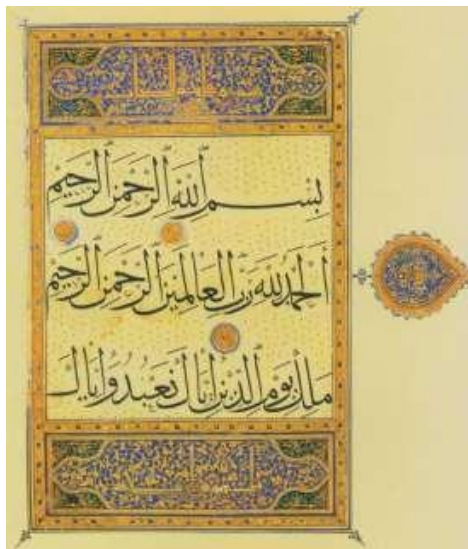 بسم الله الرحمن الرحيم
الحمد لله رب العالمين الرحمن الرحيم
ملك يوم الدين إياك نعبد وإياك